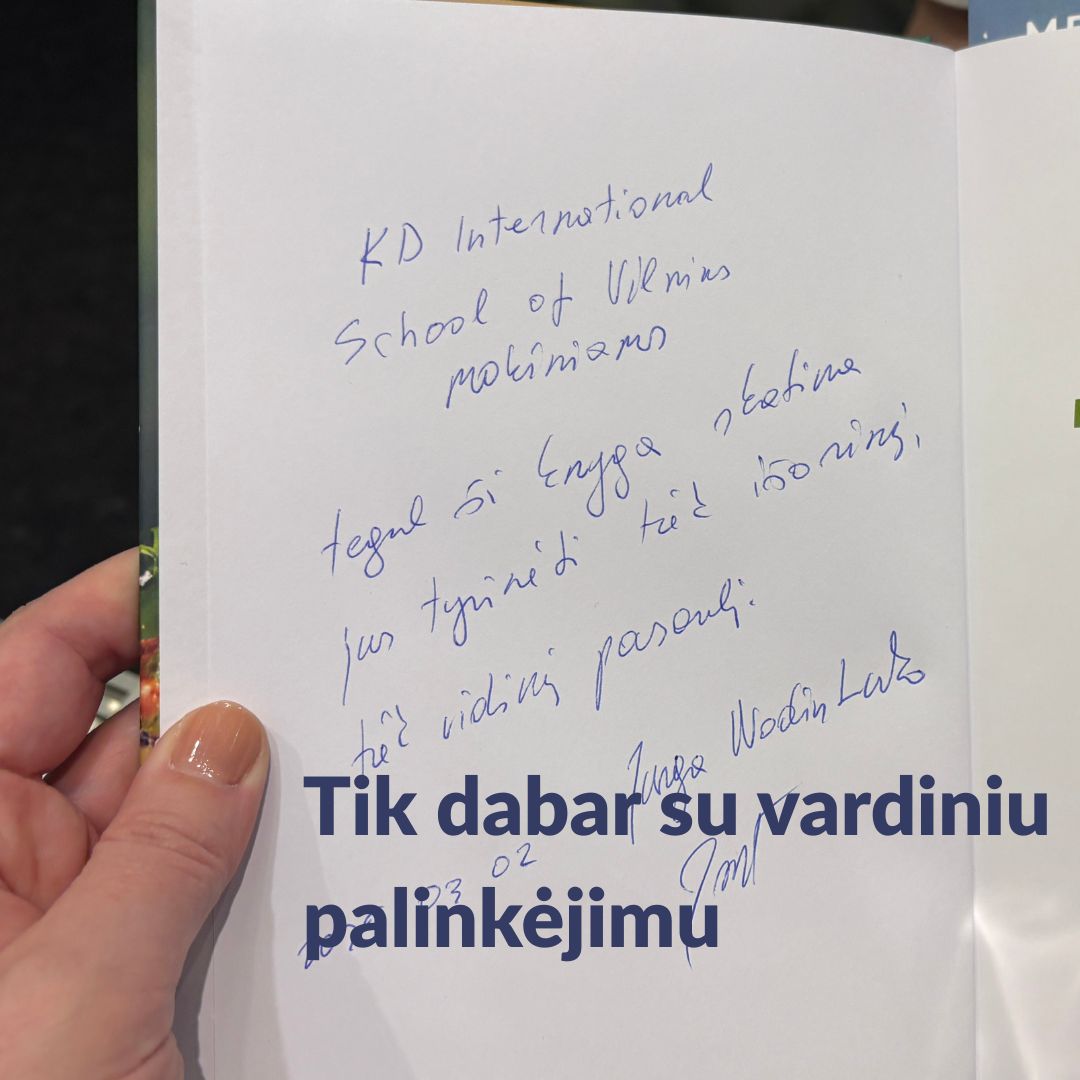 KD International
School of Vilnius
mokiniams
tegul ši knyga skatina
jus tyrinėti tiek išorinį,
tiek vidinį pasaulį.
Jurga
Tik dabar su vardiniu
03 02
palinkėjimu